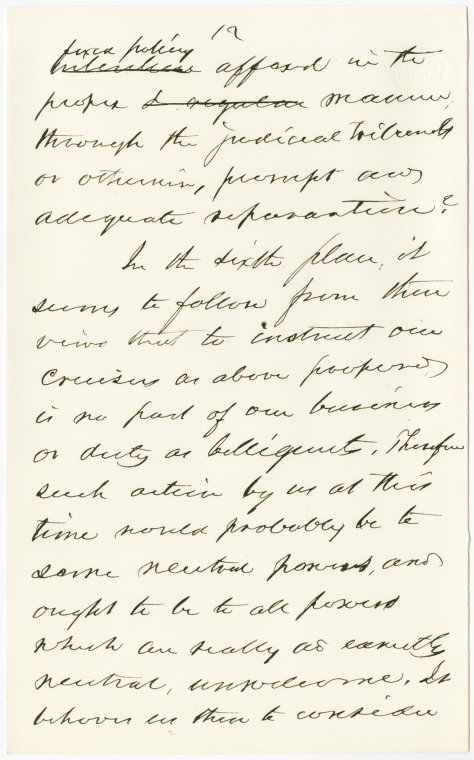 12
fixed policy
intention afford in the
proper & regular manner,
through the judicial tribunals
or otherwise, prompt and
adequate reparation?
In the sixth place, it
seems to follow from these
views that to instruct our
cruisers as above proposed
is no part of our business
or duty as belligerents. Therefore
such action by us at this
time would probably be to
some neutral powers, and
ought to be to all powers
which are really and earnestly
neutral, unwelcome. It
behooves us then to consider